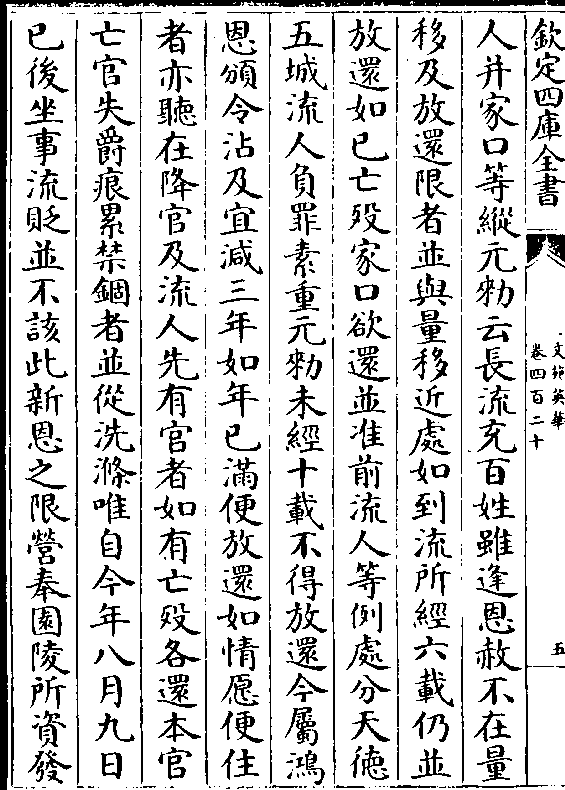 欽定四庫全書
文苑英華
卷四百二十
五
人并家口等縱元勑云長流充百姓雖逢恩赦不在量
移及放還限者並與量移近處如到流所經六載仍並
放還如已亡殁家口欲還並准前流人等例處分天德
五城流人負罪素重元勑未經十載不得放還今屬鴻
恩頒令沾及宜减三年如年已滿便放還如情愿便住
者亦聽在降官及流人先有官者如有亡殁各還本官
亡官失爵痕累禁錮者並從洗滌唯自今年八月九日
已後坐事流貶並不該此新恩之限營奉園陵所資發